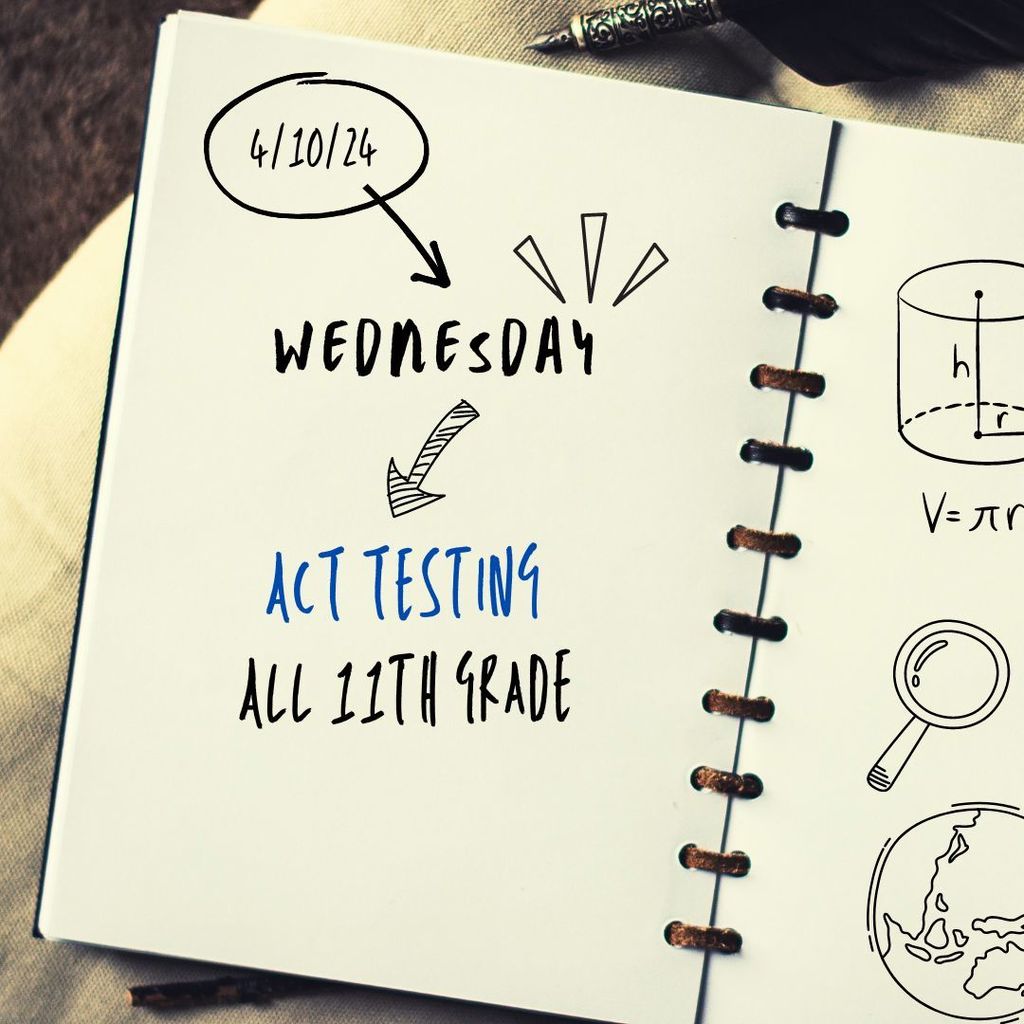 4/10/24
WEDNESDAY
ACT TESTING
ALL 11TH GRADE
h
r
V=πr